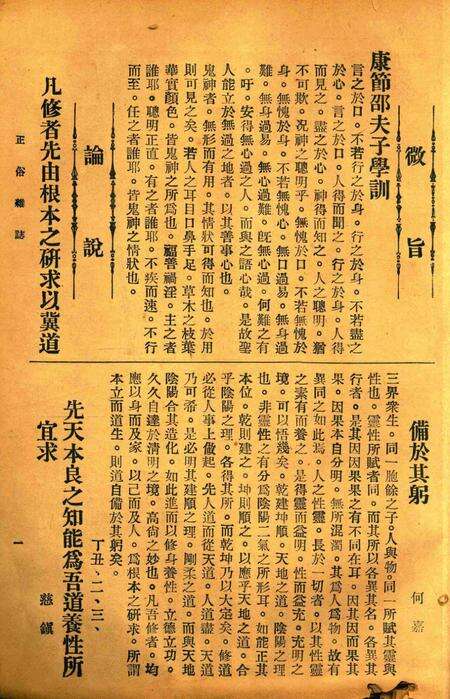 微旨
康節邵夫子學訓
言之於口。不若行之於身。行之於身。不若盡之
於心。言之於口。人得而聞之。行之於身。人得
而見之。盡之於心。神得而知之。人之聰明。猶
不可欺。况神之聰明乎。無愧於口。不若無愧於
身。無愧於身。不若無愧心。無口過易。無身過
難。無身過易。無心過難。旣無心過。何難之有
。吁。安得無心過之人。而與之語心哉。是故聖
人能立於無過之地者。以其善事心也。
鬼神者。無形而有用。其情狀可得而知也。於用
則可見之矣。若人之耳目口鼻手足。草木之枝葉
華實顏色。皆鬼神之所為也。福善禍淫。主之者
誰耶。聰明正直。有之者誰耶。不疾而速。不行
而至。任之者誰耶。皆鬼神之情狀也。
論說
凡修者先由根本之研求以冀道
備於其躬
何嘉
三界衆生。同一胞餘之子。人與物。同一所賦其靈與
性也。靈性所賦者同。而其所以各異其名。各異其
行者。是其因因果果之有不同在耳。因其因而果其
果。因果本自分明。無所混濁。其為人為物。故有
異同之如此焉。人之性靈。長於一切者。以其性靈
之素有而養之。是得靈而益明。性而益充。充明之
境。可以悟幾矣。乾建坤順。天地之道。陰陽之理
也。非靈性之有分為陰陽二氣之所形耳。如能正其
本位。乾則建之。坤則順之。以應乎天地之道。合
乎陰陽之理。各得其所。而乾坤乃以大定矣。修道
必從人事上做起。先人道而從天道。人道盡。天道
乃可希。是必明其建順之理。剛柔之道。而與天地
陰陽合其造化。如此進而以修身養性。立德立功。
久久自達於清明之境。高尙之妙也。凡吾修者。均
應以身而及家。以己而及人。為根本之研求。所謂
本立而道生。則道自備於其躬矣。
丁丑、二、三、
先天本良之知能爲吾道養性所
宜求
慈領
正俗雜誌
一